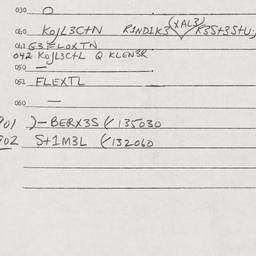 030 O
060 KOJL3C+N R1ND1K3 XAL3 K3S+3S+U
041 S3FLOXTN
042 KOJL3C+L Q KLEN3R
050 —
051 FLEXTL
060 —
901 )-BERX3S (/ 135030
902 S+1M3L (/132060